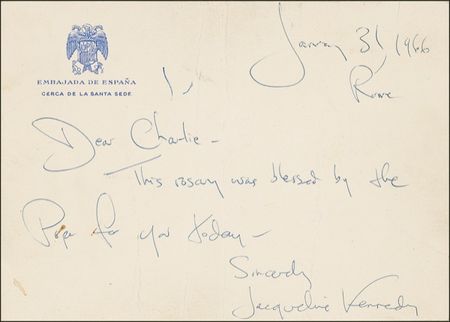 January 31 1966
Rome
EMBAJADA DE ESPAÑA
CERCA DE LA SANTA SEDE
Dear Charlie -
This rosary was blessed by the
Pope for you today -
Sincerely
Jacqueline Kennedy